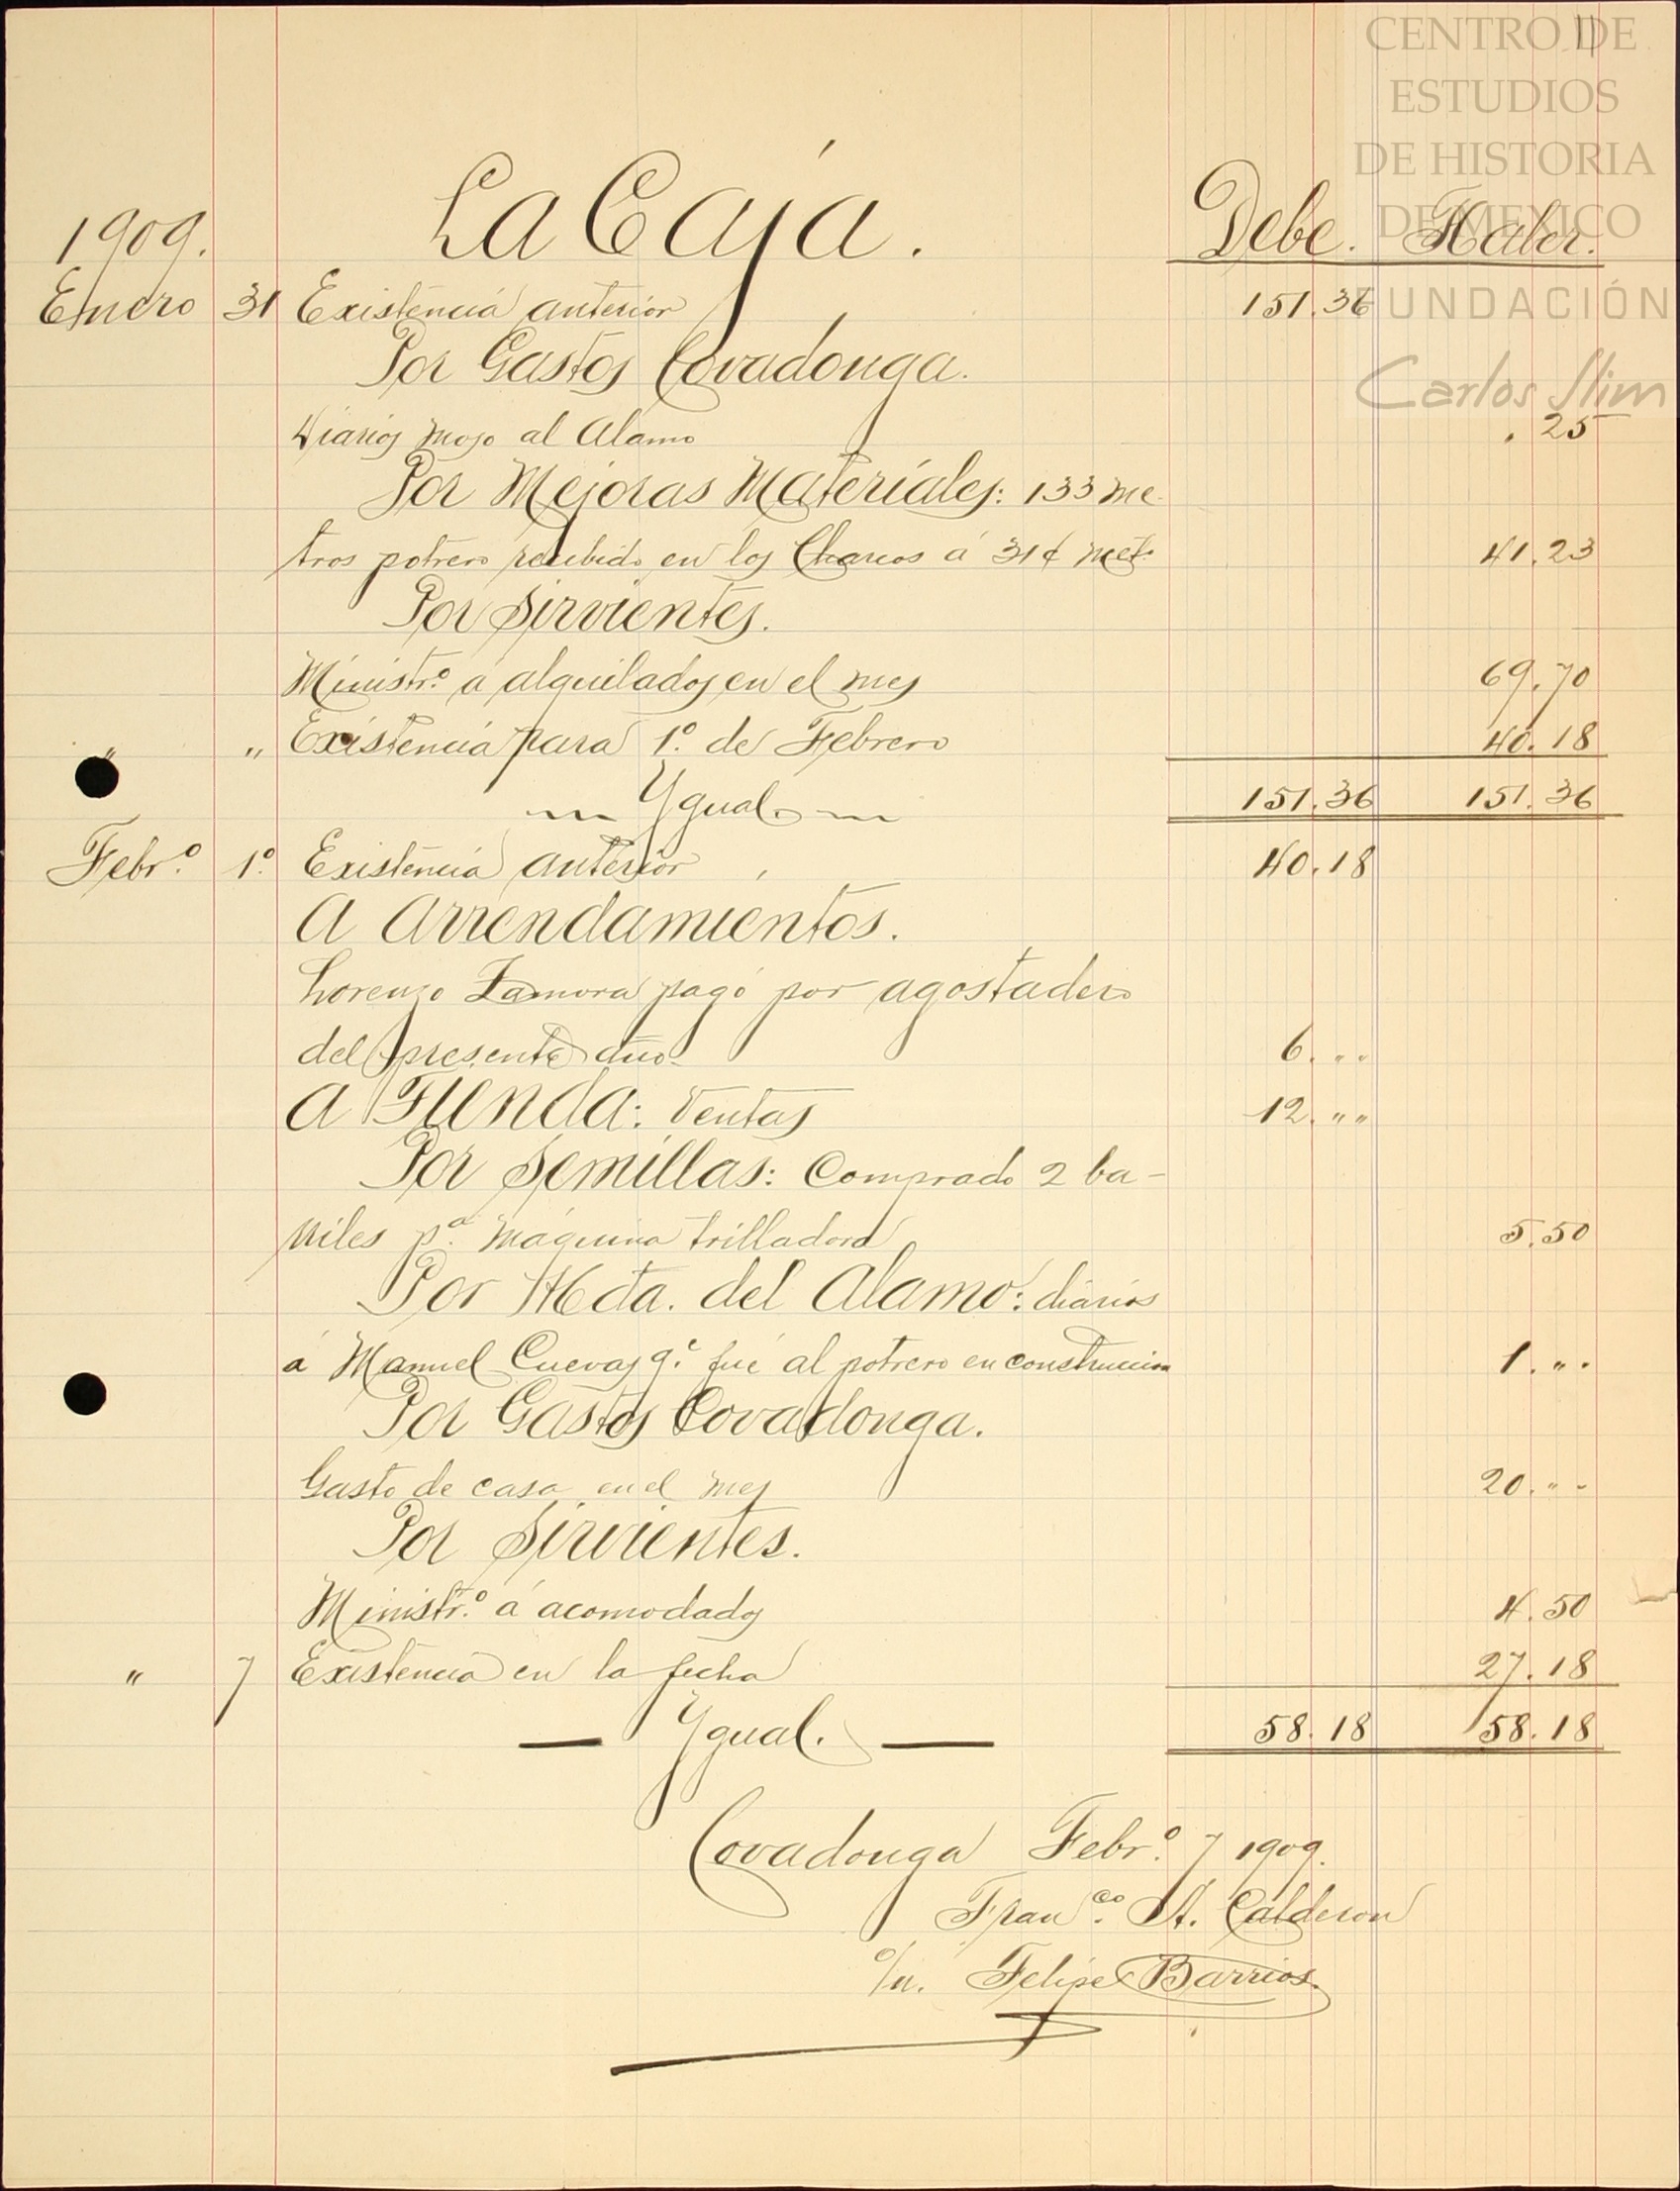 CENTRO DE
ESTUDIOS
DE HISTORIA
DE MEXICO
FUNDACIÓN
Carlos Slim
1909. La Caja. Debe. Haber.
Enero 31 Existencia anterior 151.36
Por Gastos Covadonga.
Diarios mozo al Alamo .25
Por Mejoras Materiales: 133 me-
tros potrero recibido en los Charcos á 31¢ met. 41.23
Por Sirvientes.
Ministr.º á alquilados en el mes 69.70
" " Existencia para 1º. de Febrero 40.18
Ygual. 151.36 151.36
Febr.º 1º. Existencia anterior 40.18
A Arrendamientos.
Lorenzo Zamora pagó por agostadero
del presente año 6. " "
A Tienda: Ventas 12. " "
Por Semillas: Comprado 2 ba-
rriles p.ª máquina trilladora 5.50
Por Hcda. del Alamo: diarios
á Manuel Cuevas q.e fué al potrero en construccion 1. " "
Por Gastos Covadonga.
Gasto de casa en el mes 20. " "
Por Sirvientes.
Ministr.º á acomodados 4.50
" 7 Existencia en la fecha 27.18
— Ygual. — 58.18 58.18
Covadonga Febr.º 7 1909.
Fran.co A. Calderon
Felipe Barrios.